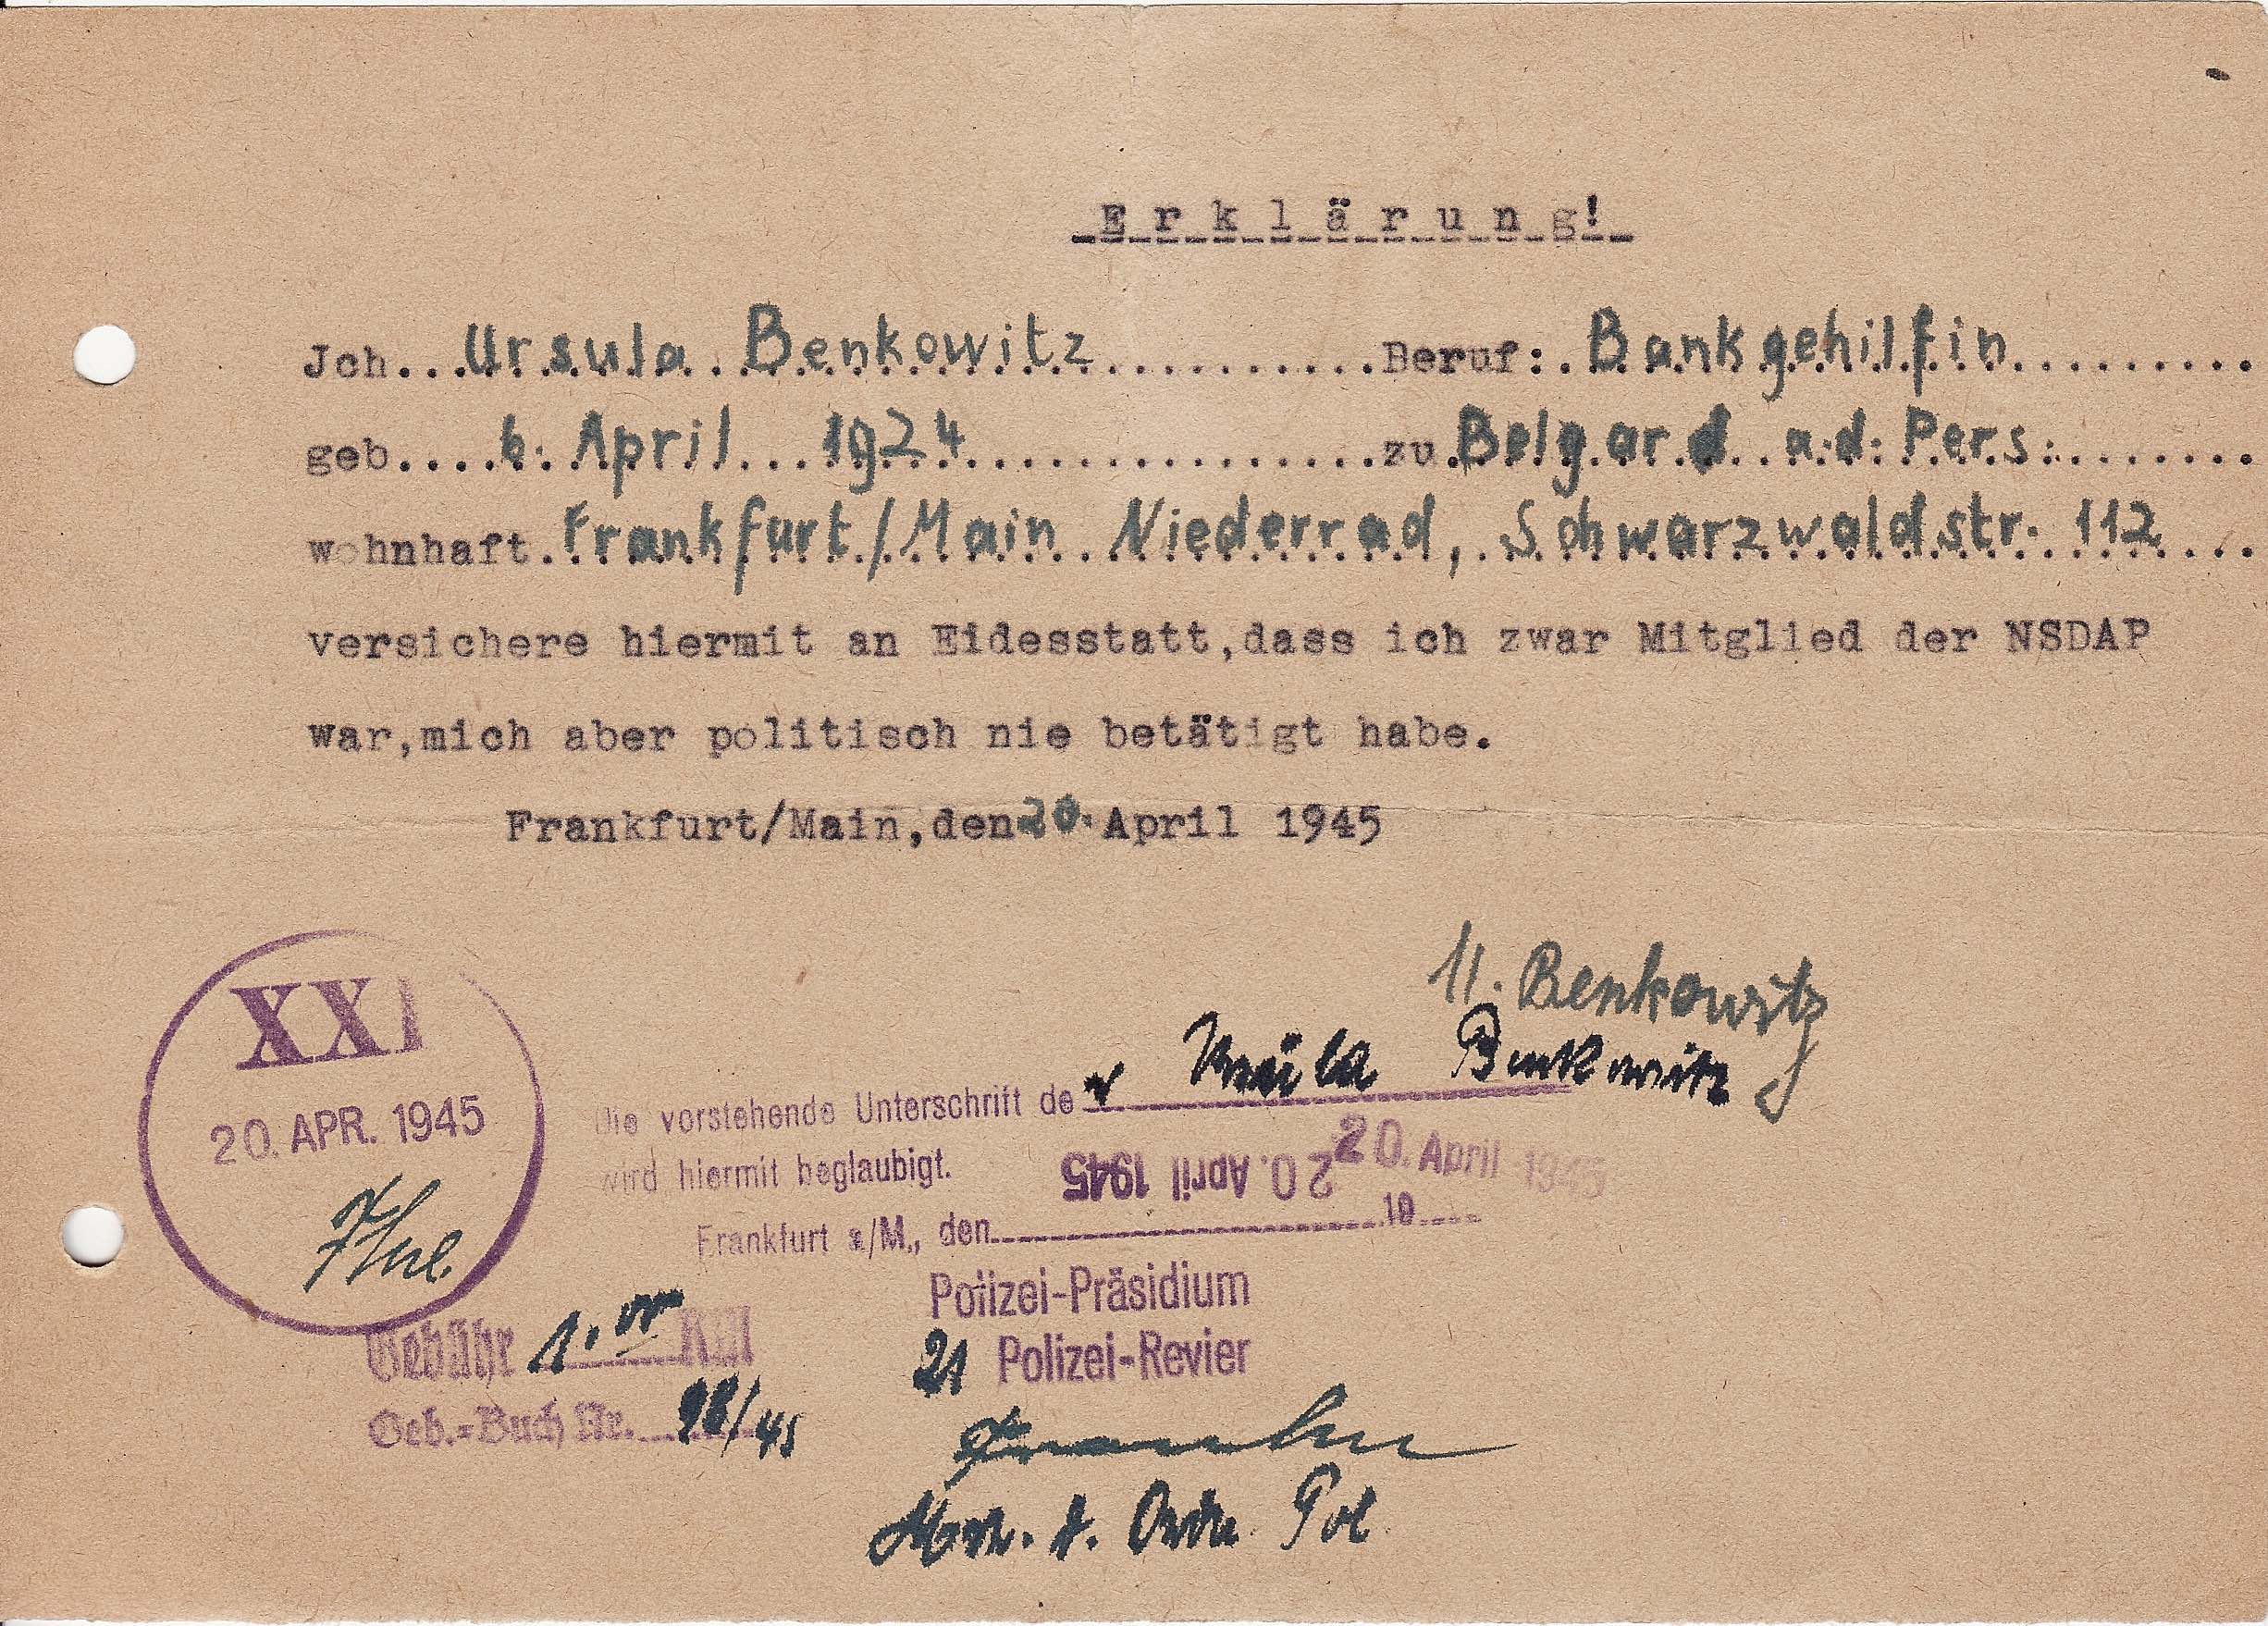 Erklärung!
Jch...Ursula Benkowitz...........Beruf:.Bankgehilfin.........
geb....6. April 1924................zu.Belgard a.d. Pers.........
wohnhaft.Frankfurt/Main Niederrad, Schwarzwaldstr. 112....
versichere hiermit an Eidesstatt,dass ich zwar Mitglied der NSDAP
war,mich aber politisch nie betätigt habe.
Frankfurt/Main,den 20. April 1945
U. Benkowitz
XXI
20. APR. 1945
Die vorstehende Unterschrift der Ursula Benkowitz
wird hiermit beglaubigt.
20. April 1945
20. April 1945
Frankfurt a/M., den 19
Polizei-Präsidium
21 Polizei-Revier
Gebühr 1.00 RM
Geb.-Buch Nr. 98/45